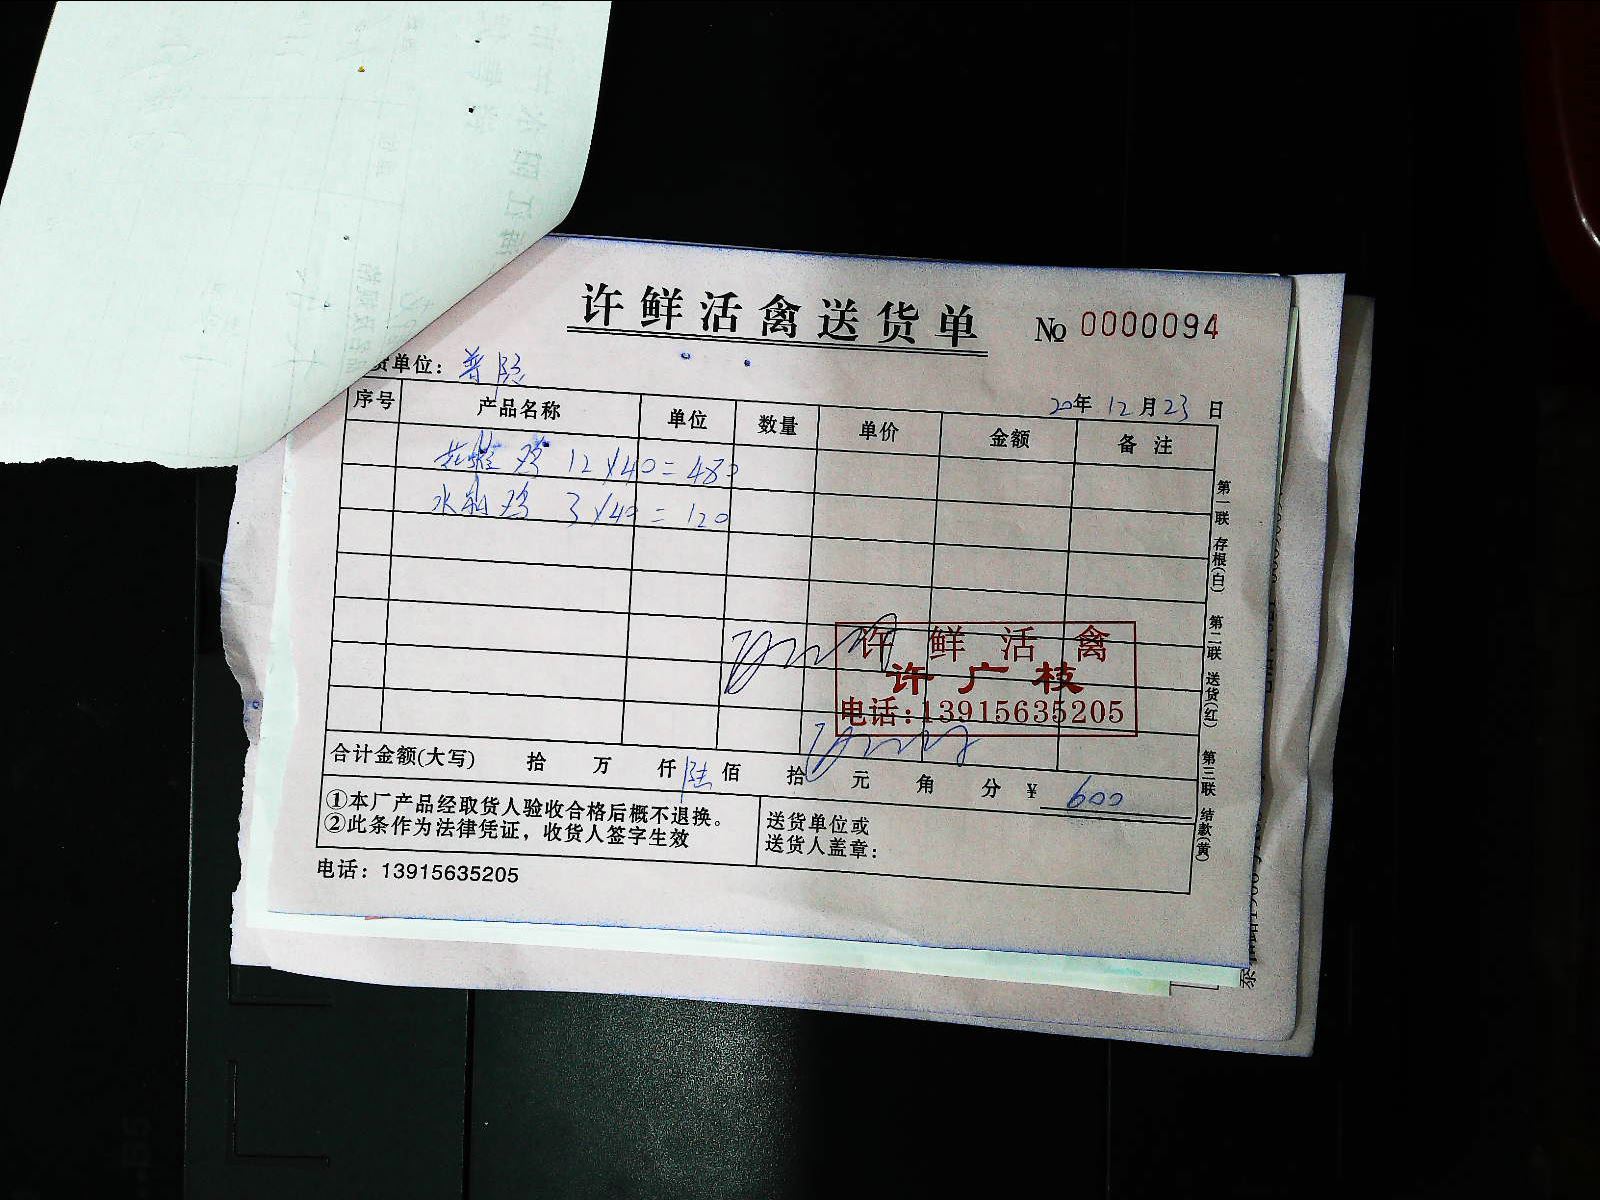 许鲜活禽送货单 No 0000094
货单位：普照
20年 12月23日
序号 产品名称 单位 数量 单价 金额 备注
鸡 12×40=480
水利鸡 3×40=120
许鲜活禽
许广枝
电话:13915635205
合计金额(大写) 拾 万 仟陆佰 拾 元 角 分 ¥ 600
①本厂产品经取货人验收合格后概不退换。
②此条作为法律凭证，收货人签字生效
送货单位或
送货人盖章：
电话：13915635205
第一联 存根(白) 第二联 送货(红) 第三联 结款(黄)